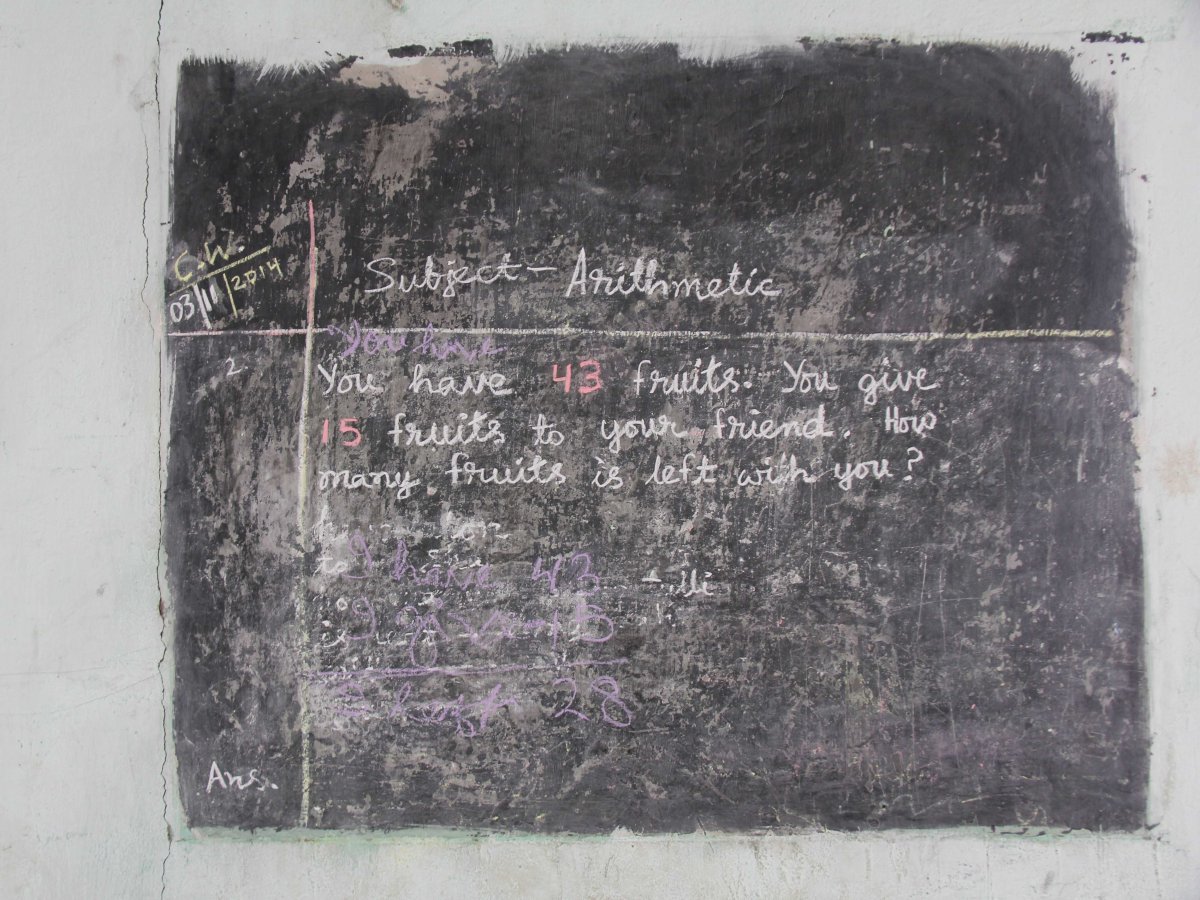 C.W.
03/11/2014
Subject - Arithmetic
You have
2
You have 43 fruits. You give
15 fruits to your friend. How
many fruits is left with you?
I have 43
I give -15
28
Ans.